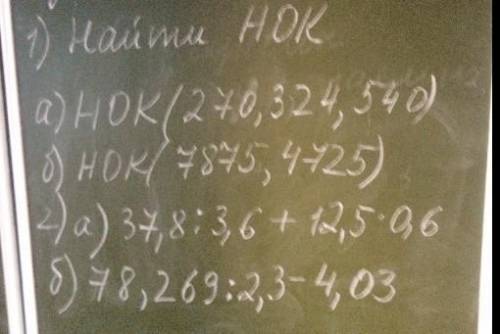 1) Найти НОК
а) НОК(270,324,540)
б) НОК( 7875, 4725)
2) а) 37,8:3,6 + 12,5·0,6
б) 78,269:2,3-4,03